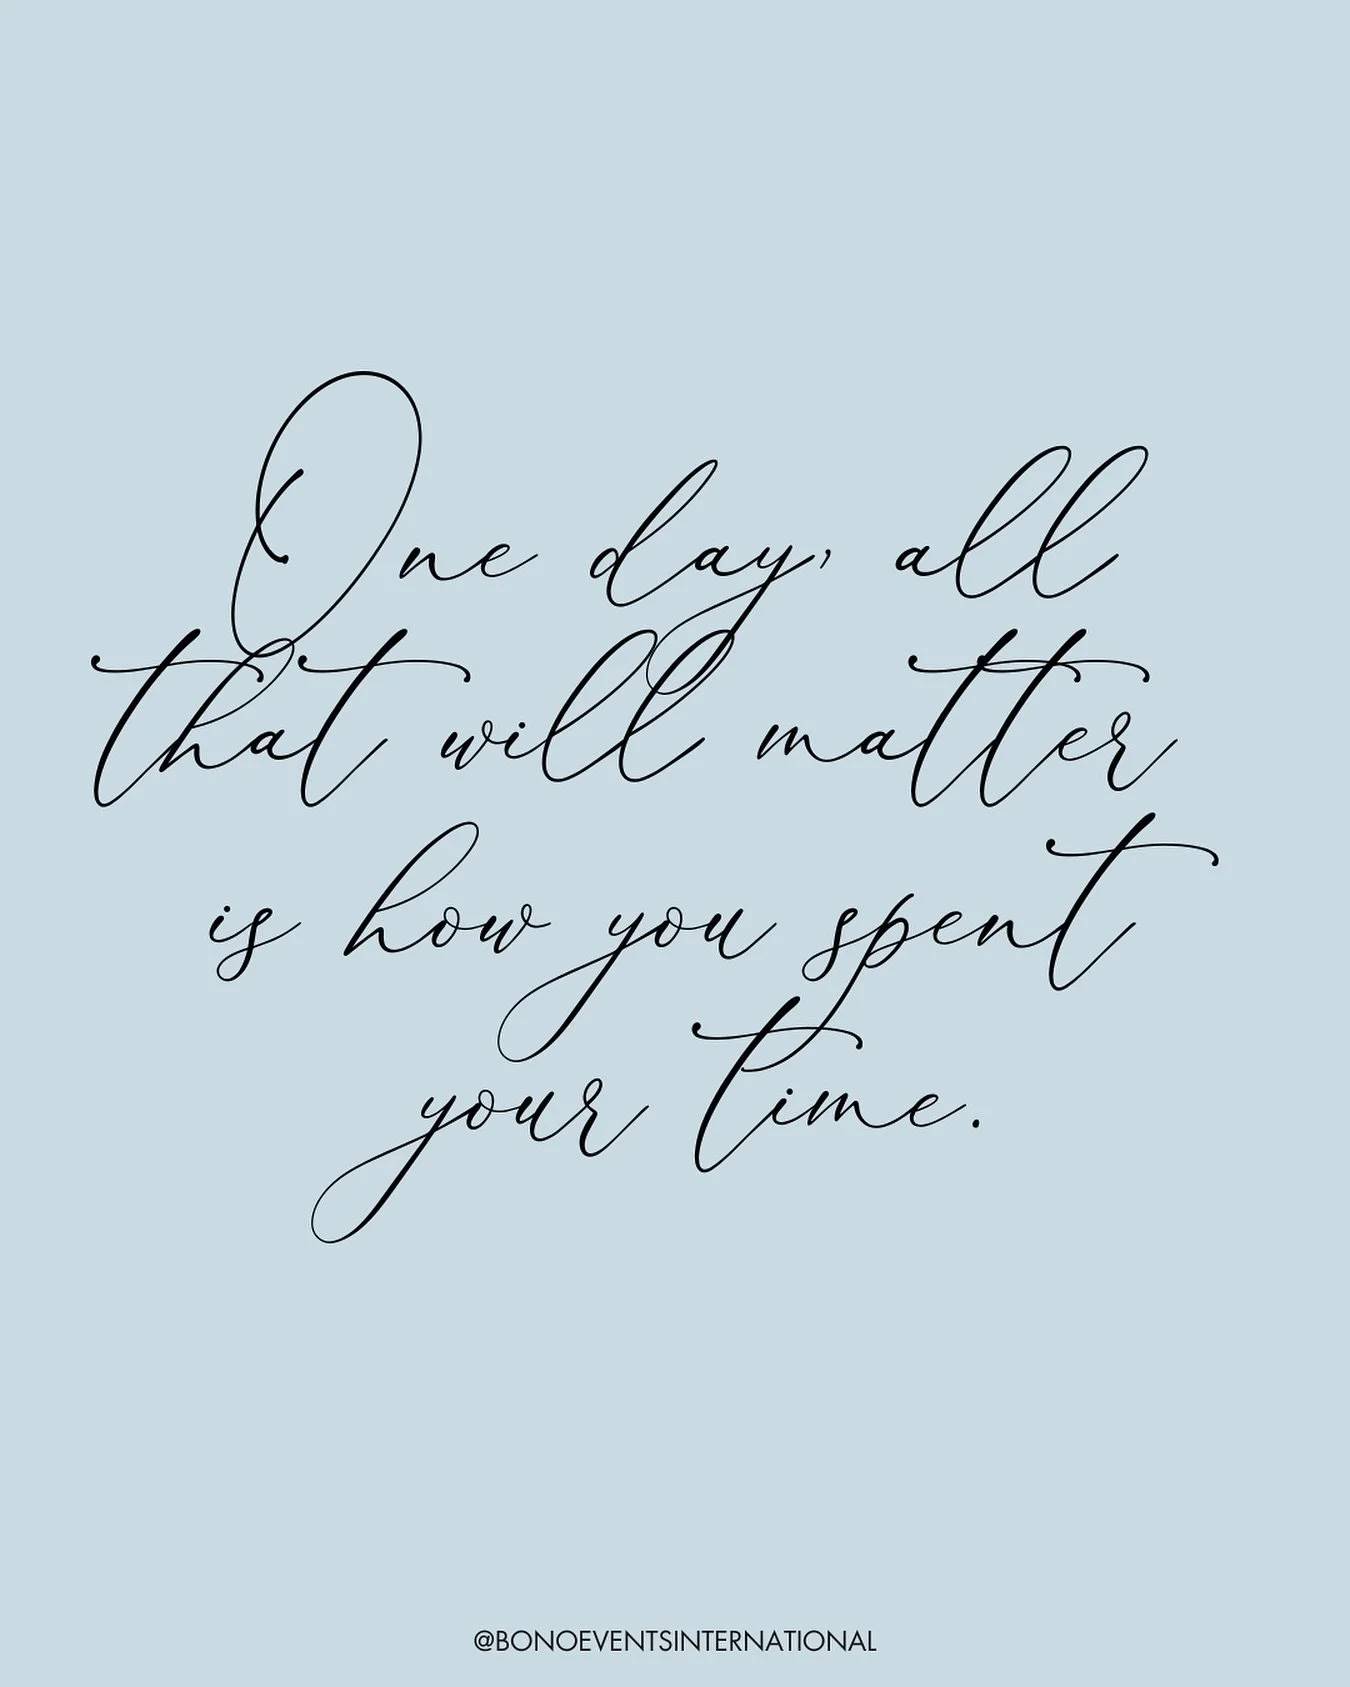 One day, all
that will matter
is how you spent
your time.
@BONOEVENTSINTERNATIONAL